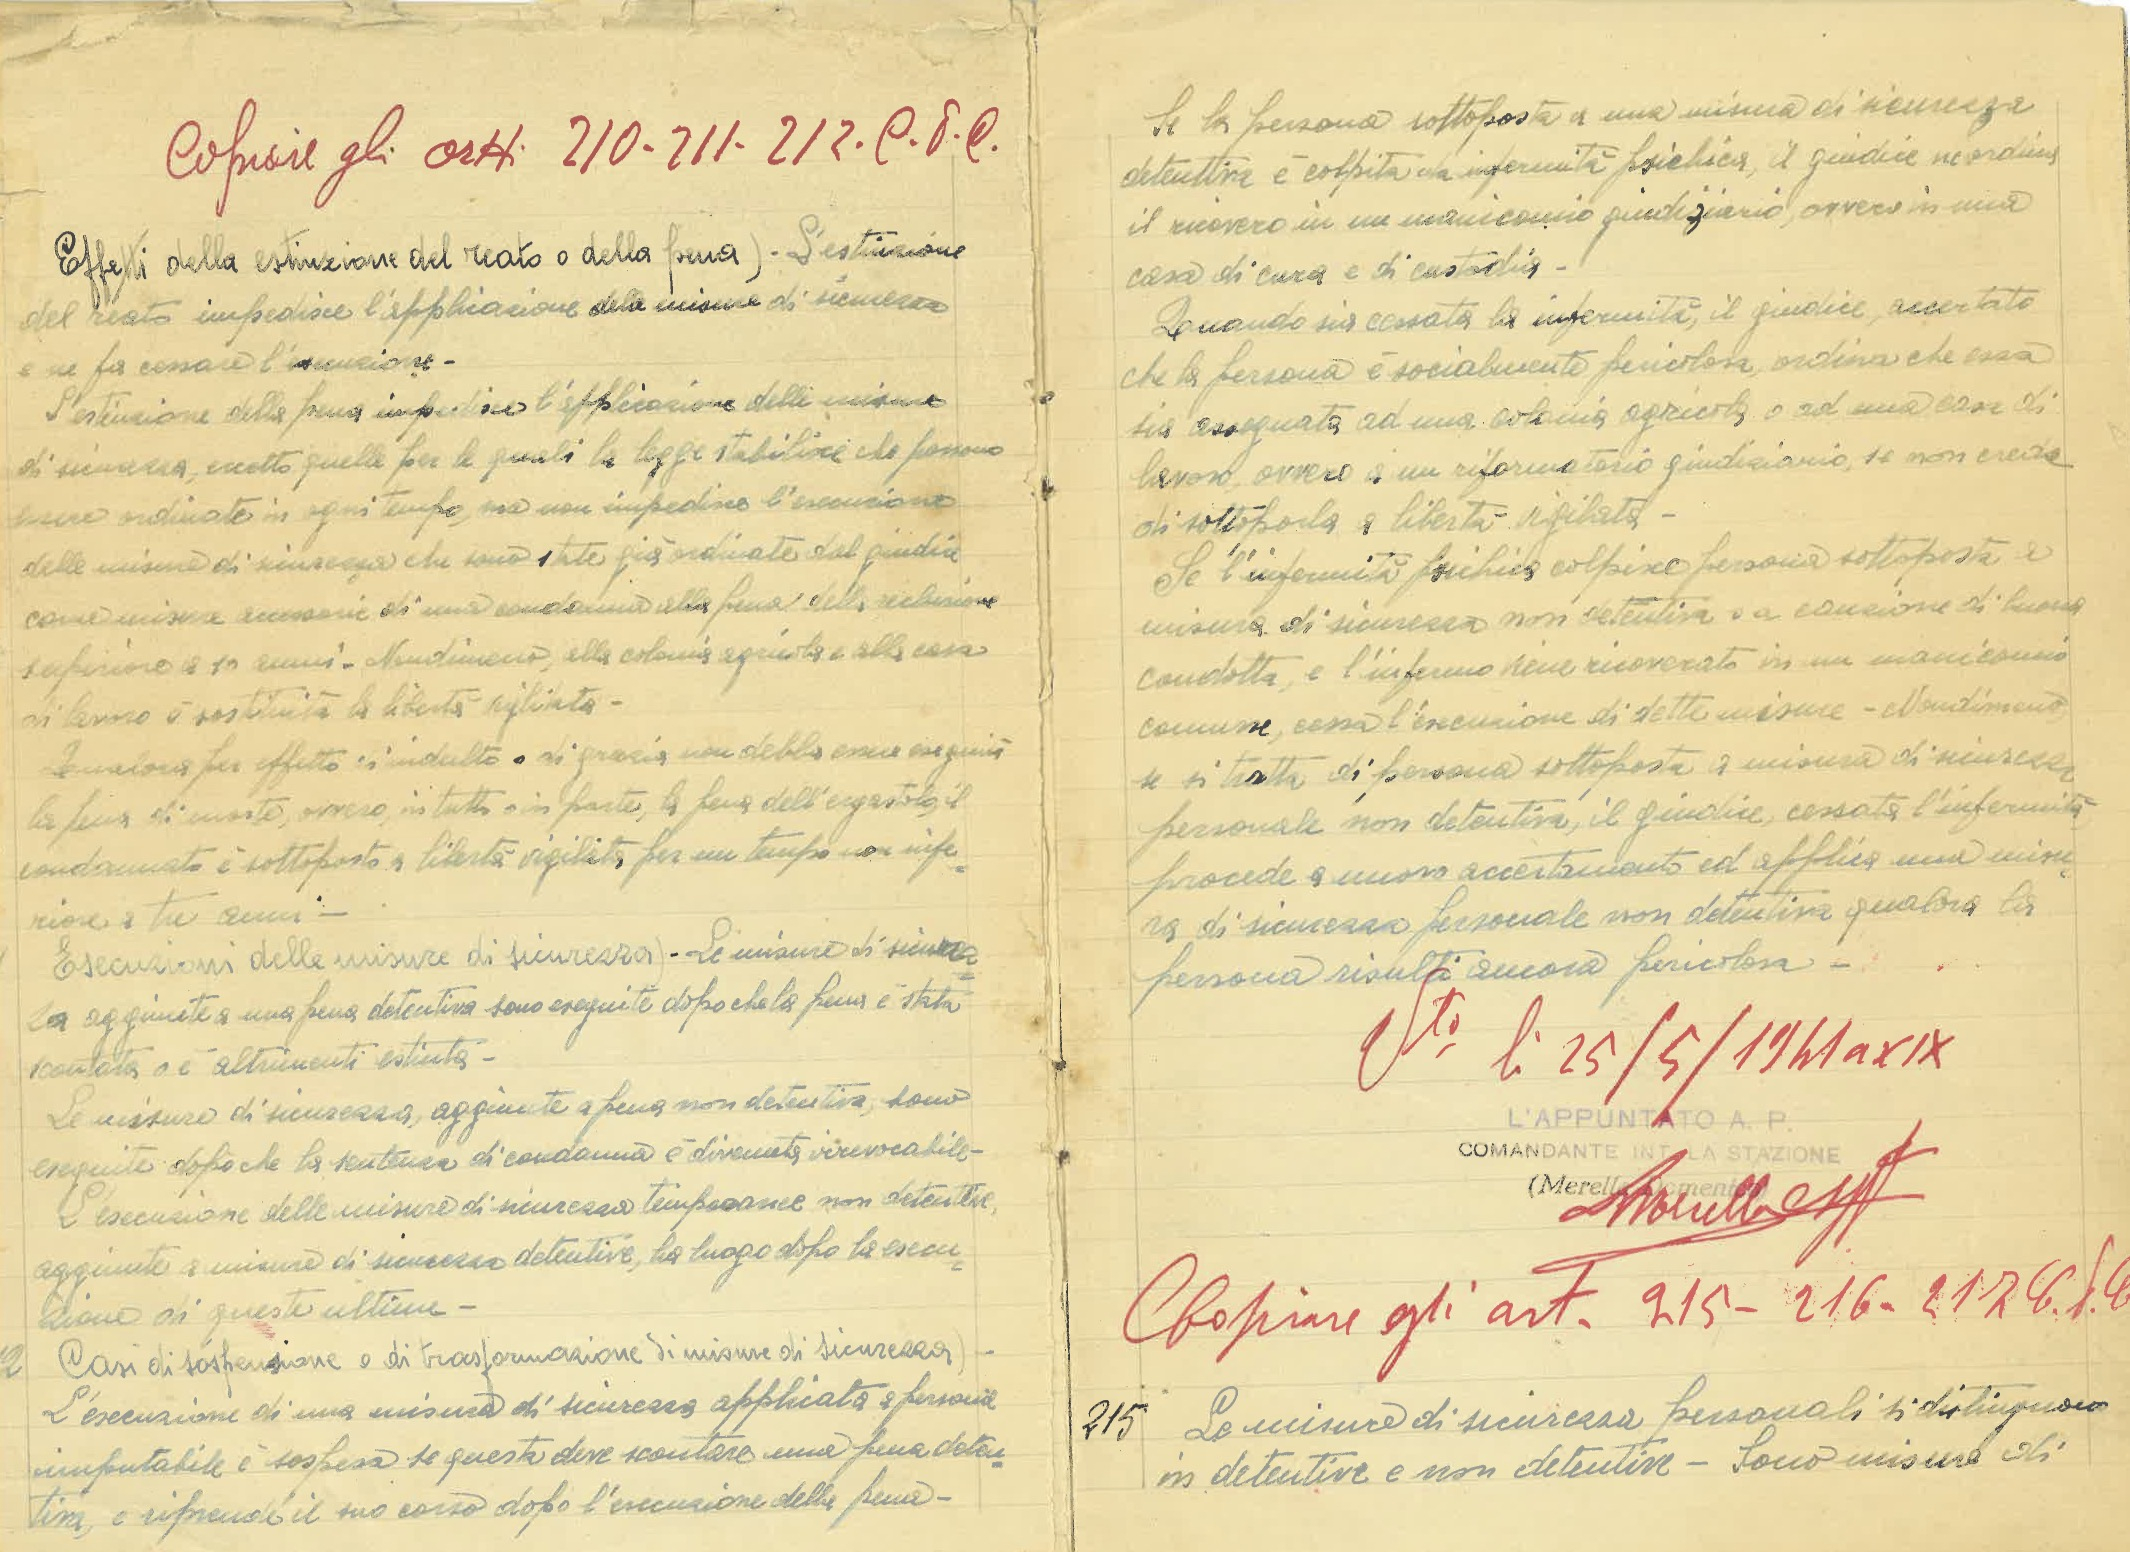 Copiare gli artt. 210-211-212. C.P.C.
Effetti della estinzione del reato o della pena) - L'estinzione
del reato impedisce l'applicazione delle misure di sicurezza
e ne fa cessare l'esecuzione -
L'estinzione della pena impedisce l'applicazione delle misure
di sicurezza, eccetto quelle per le quali la legge stabilisce che possono
essere ordinate in ogni tempo, ma non impedisce l'esecuzione
delle misure di sicurezza che sono state già ordinate dal giudice
come misure accessorie di una condanna alla pena della reclusione
superiore a 10 anni - Nondimeno, alla colonia agricola e alla casa
di lavoro è sostituita la libertà vigilata -
Qualora per effetto di indulto o di grazia non debba essere eseguita
la pena di morte, ovvero, in tutto o in parte, la pena dell'ergastolo, il
condannato è sottoposto a libertà vigilata per un tempo non infe=
riore a tre anni -
Esecuzioni delle misure di sicurezza) - Le misure di sicurez=
za aggiunte a una pena detentiva sono eseguite dopo che la pena è stata
scontata o è altrimenti estinta -
Le misure di sicurezza, aggiunte a pena non detentiva, sono
eseguite dopo che la sentenza di condanna è divenuta irrevocabile -
L'esecuzione delle misure di sicurezza temporanee non detentive,
aggiunte a misure di sicurezza detentive, ha luogo dopo la esecu=
zione di queste ultime -
2 Casi di sospensione o di trasformazione di misure di sicurezza) -
L'esecuzione di una misura di sicurezza applicata a persona
imputabile è sospesa se questa deve scontare una pena deten=
tiva, e riprende il suo corso dopo l'esecuzione della pena -
Se la persona sottoposta a una misura di sicurezza
detentiva è colpita da infermità psichica, il giudice ne ordina
il ricovero in un manicomio giudiziario, ovvero in una
casa di cura e di custodia -
Quando sia cessata la infermità, il giudice, accertato
che la persona è socialmente pericolosa, ordina che essa
sia assegnata ad una colonia agricola o ad una casa di
lavoro, ovvero a un riformatorio giudiziario, se non crede
di sottoporla a libertà vigilata -
Se l'infermità psichica colpisce persona sottoposta a
misura di sicurezza non detentiva o a cauzione di buona
condotta, e l'infermo viene ricoverato in un manicomio
comune, cessa l'esecuzione di dette misure - Nondimeno,
se si tratta di persona sottoposta a misura di sicurezza
personale non detentiva, il giudice, cessata l'infermità,
procede a nuovo accertamento ed applica una misu=
ra di sicurezza personale non detentiva qualora la
persona risulti ancora pericolosa -
Vto. li 25/5/1941 a XIX
L'APPUNTATO A. P.
COMANDANTE INT. LA STAZIONE
(Merella Domenico)
Copiare gli art. 215-216-217 C.P.C
215 Le misure di sicurezza personali si distinguono
in detentive e non detentive - Sono misure di